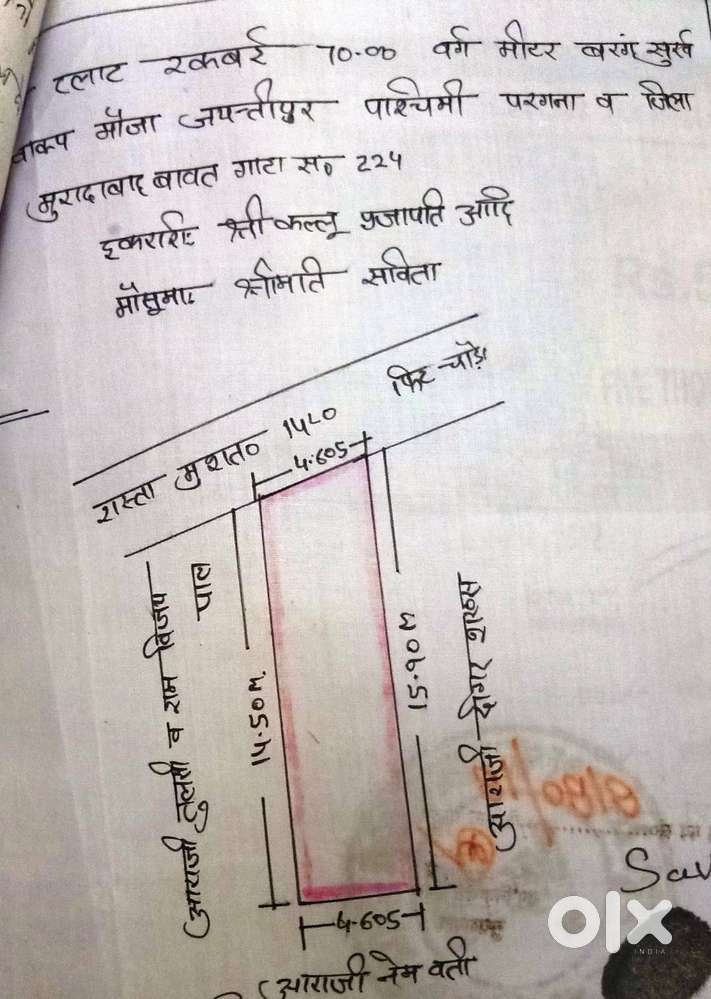 प्लाट रकबई 70.00 वर्ग मीटर बरंग सुर्ख
वाकप मौजा जयन्तीपुर पाश्चिमी परगना व जिला
मुरादाबाद बावत गाटा स० 224
इकरारी: श्री कल्लू प्रजापति आदि
मौसूमा: श्रीमति सविता
फिट चौड़ा
रास्ता मुशत०
4.605
आराजी तुलसी व राम विजय
पाल
14.50M.
15.90M
आराजी दीगर शख्स
4.605
आराजी नेम वती
Sav
olx
INDIA